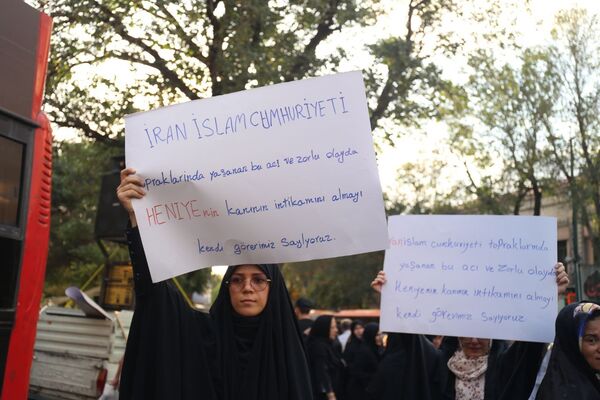 İRAN İSLAM CUMHURİYETİ
praklarında yaşanan bu acı ve zorlu olayda
HENİYE'nin kanının intikamını almayı
kendi görevimiz Sayıyoruz.
iran islam cumhuriyeti topraklarında
yaşanan bu acı ve zorlu olayda
Heniyenin kanının intikamını almayı
kendi görevimiz Sayıyoruz